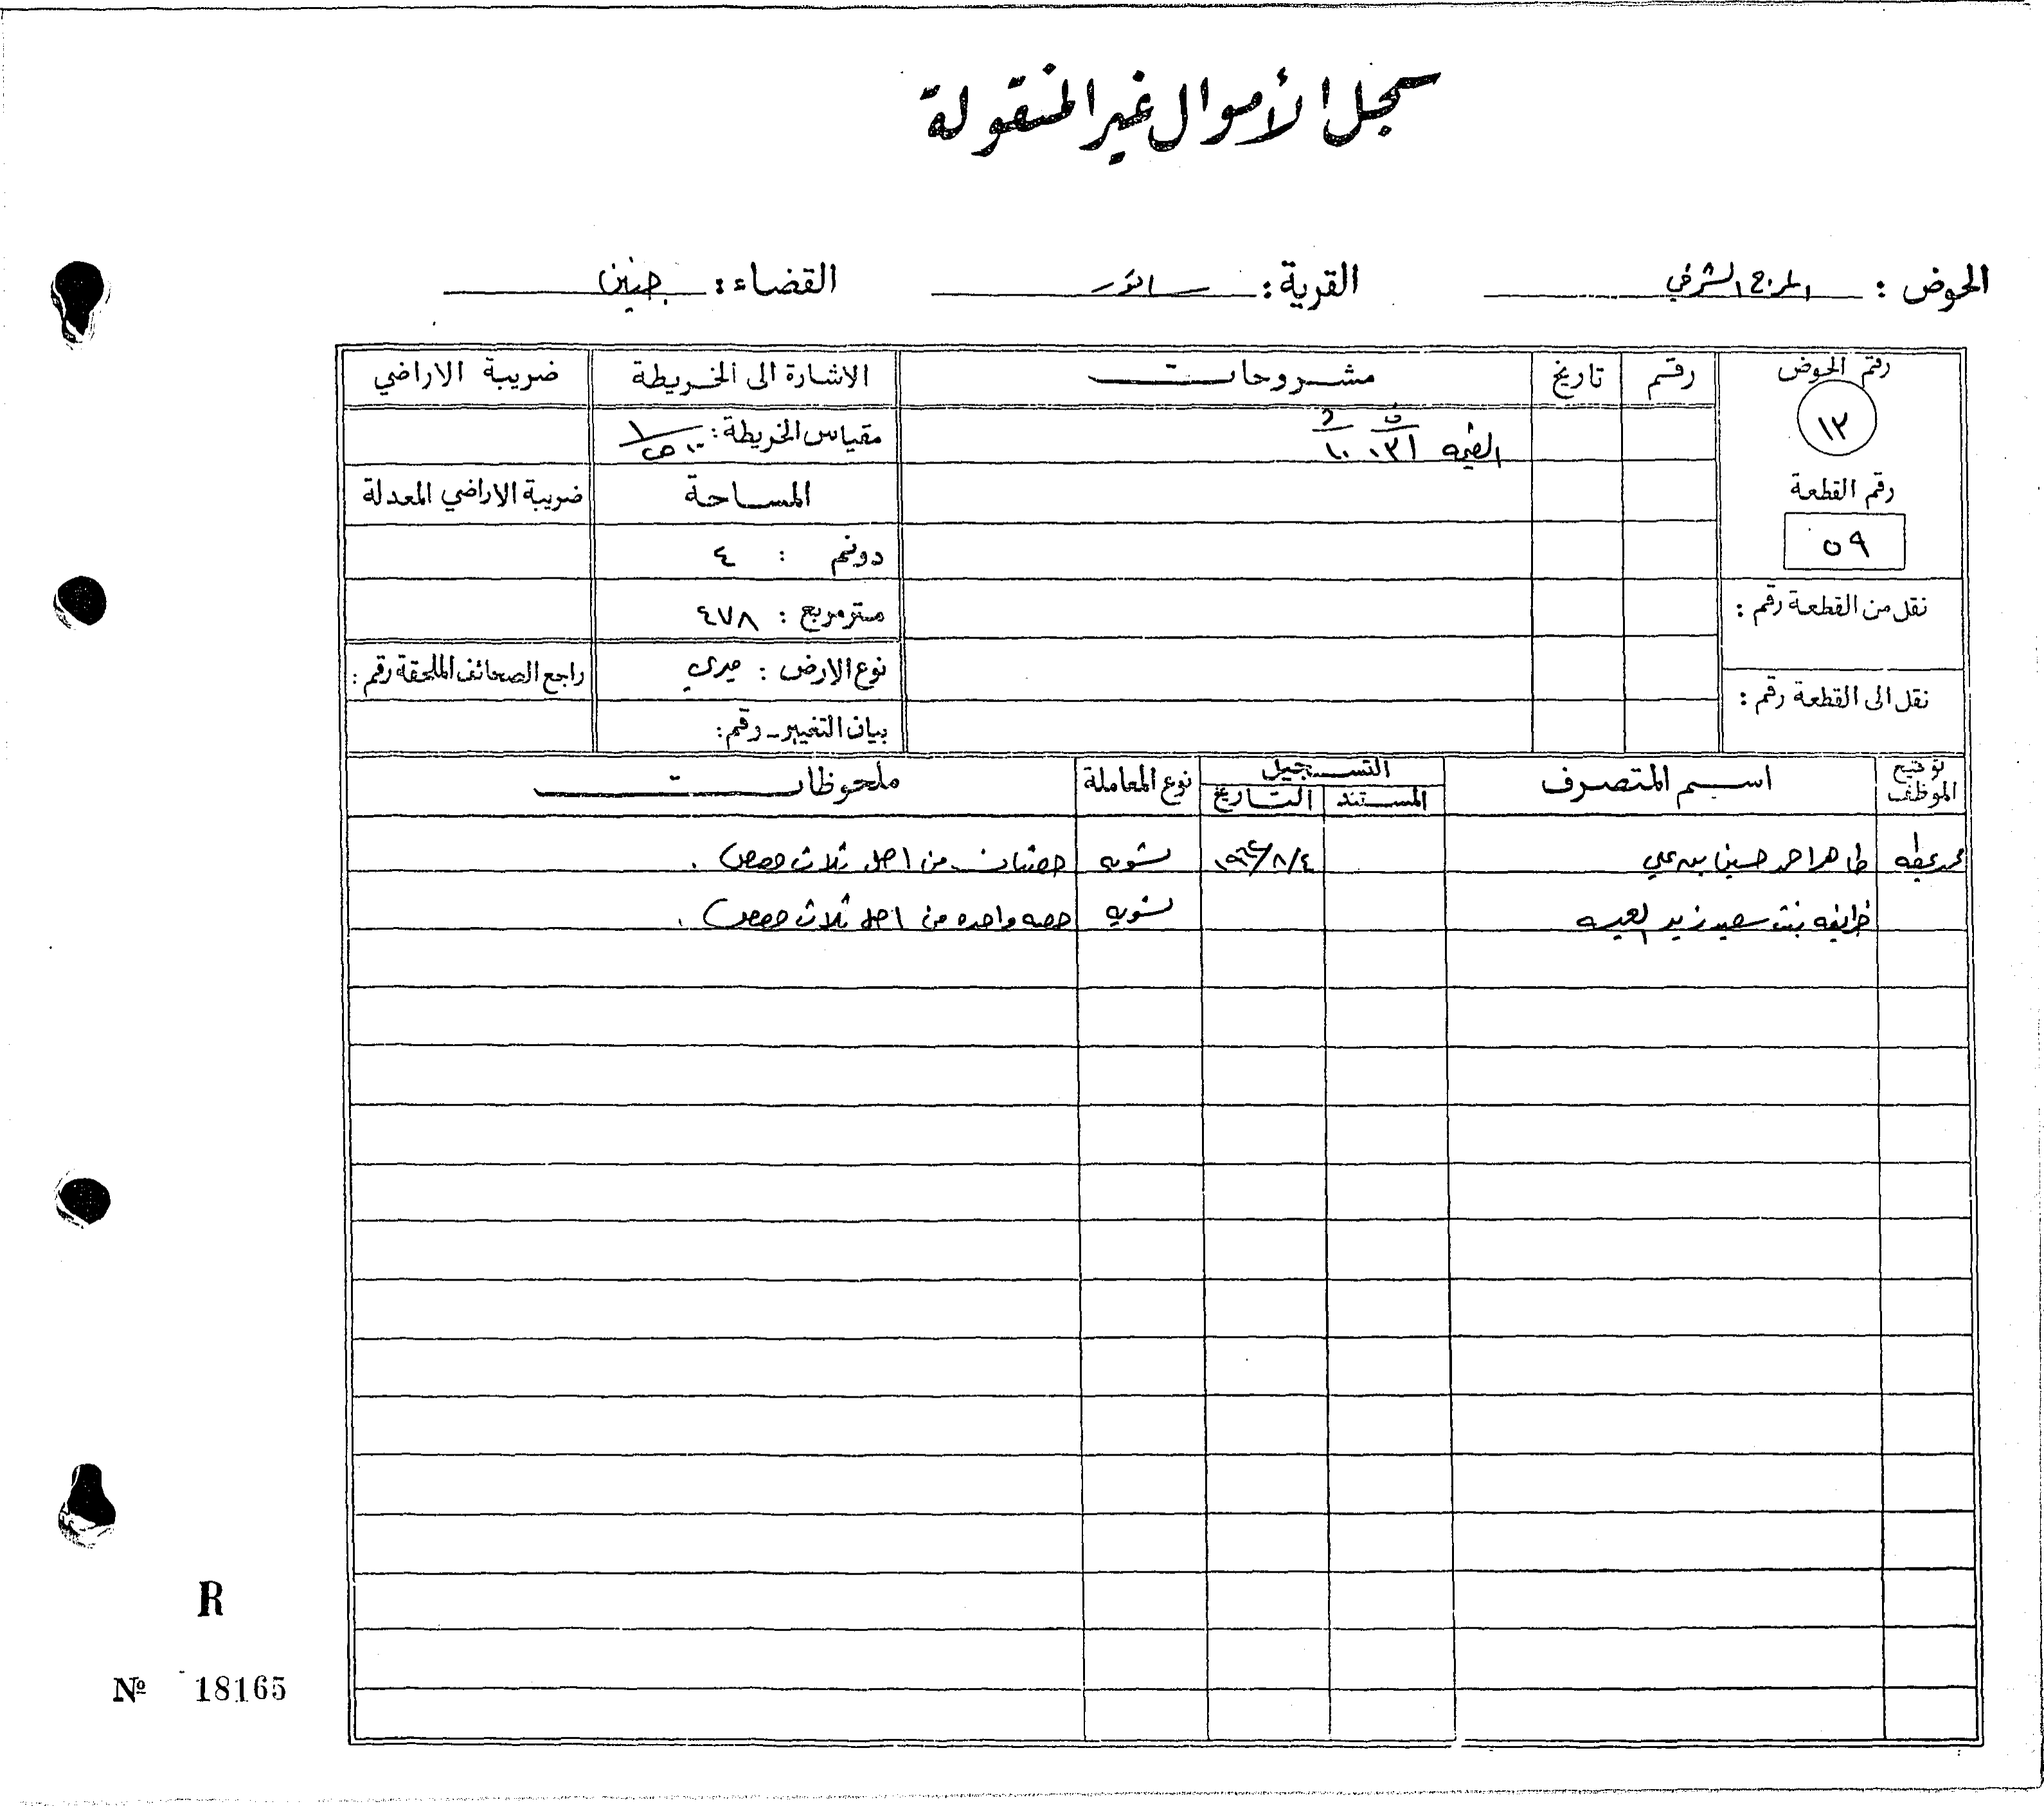 سجل الأموال غير المنقولة
الحوض : المرج الشرقي القرية : سانور القضاء : جنين
رقم الحوض رقم تاريخ مشروحات الاشارة الى الخريطة ضريبة الاراضي
١٣ القيمه مقياس الخريطة :
رقم القطعة المساحة ضريبة الاراضي المعدلة
٥٩ دونم : ٤
نقل من القطعة رقم : متر مربع : ٤٧٨
نوع الارض : ميري راجع الصحائف الملحقة رقم :
نقل الى القطعة رقم : بيان التغيير - رقم :
توقيع الموظف اسم المتصرف التسجيل نوع المعاملة ملحوظات
المستند التاريخ
طاهر احمد حسين تسويه حصتان من اصل ثلاث حصص .
بنت سعيد زيد تسويه حصه واحده من اصل ثلاث حصص .
R
№ 18165